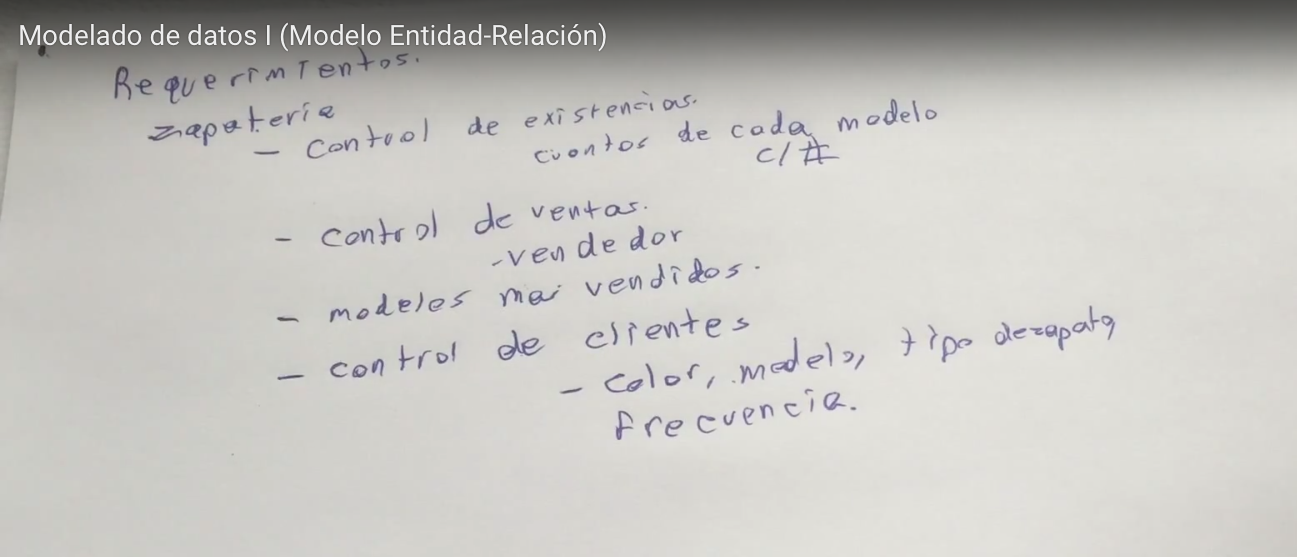 Modelado de datos I (Modelo Entidad-Relación)
Requerimientos.
zapateria
- control de existencias.
cuantos de cada modelo
c/#
- control de ventas.
- vendedor
- modelos mas vendidos.
- control de clientes
- color, modelo, tipo de zapato,
frecuencia.